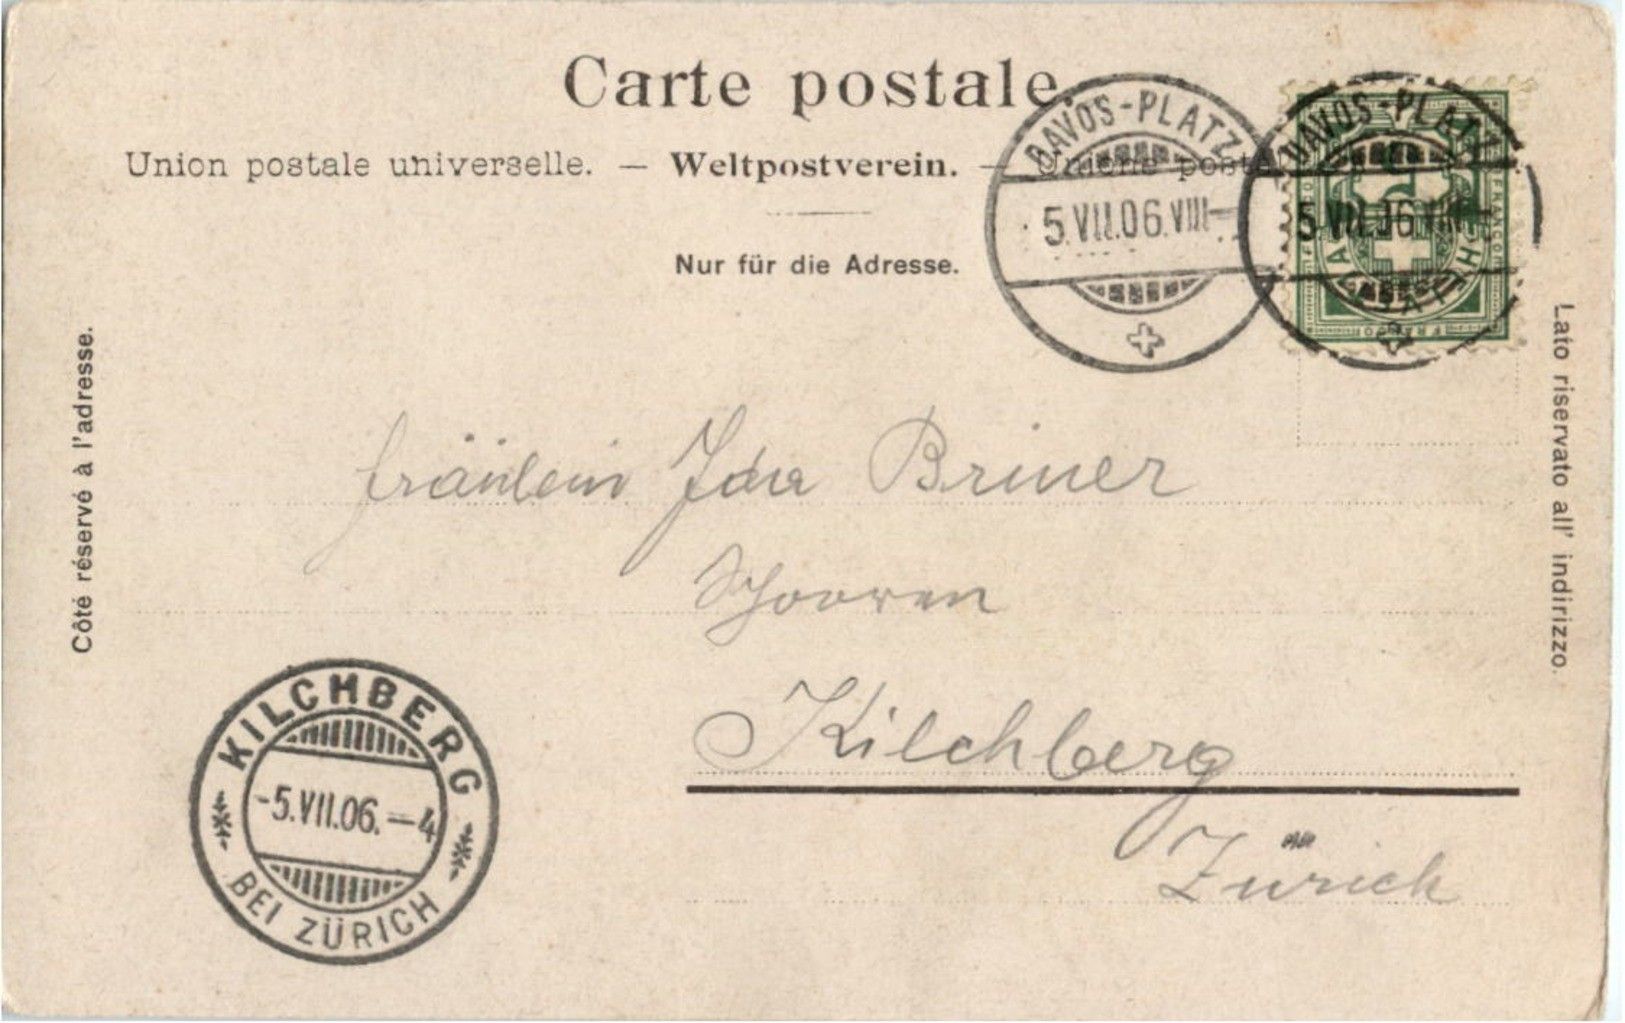 Carte postale.
Union postale universelle. — Weltpostverein. — Unione postale
Nur für die Adresse.
Côté réservé à l'adresse.
Lato riservato all' indirizzo.
DAVOS-PLATZ
5.VII.06.VIII—
DAVOS-PLATZ
5.VII.06.VIII—
5
HELVETIA
FRANCO
FRANCO
Fräulein Ida Briner
Schooren
Kilchberg
Zürich
KILCHBERG
-5.VII.06.—4
BEI ZÜRICH